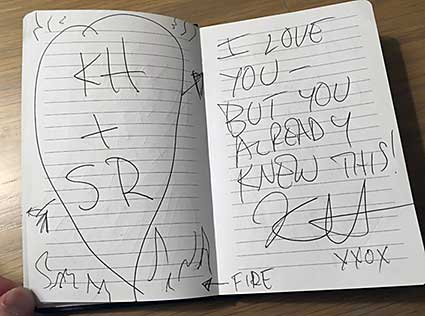 KH
+
SR
FIRE
I LOVE
YOU —
BUT YOU
ALREADY
KNEW THIS!
KH
XXOX